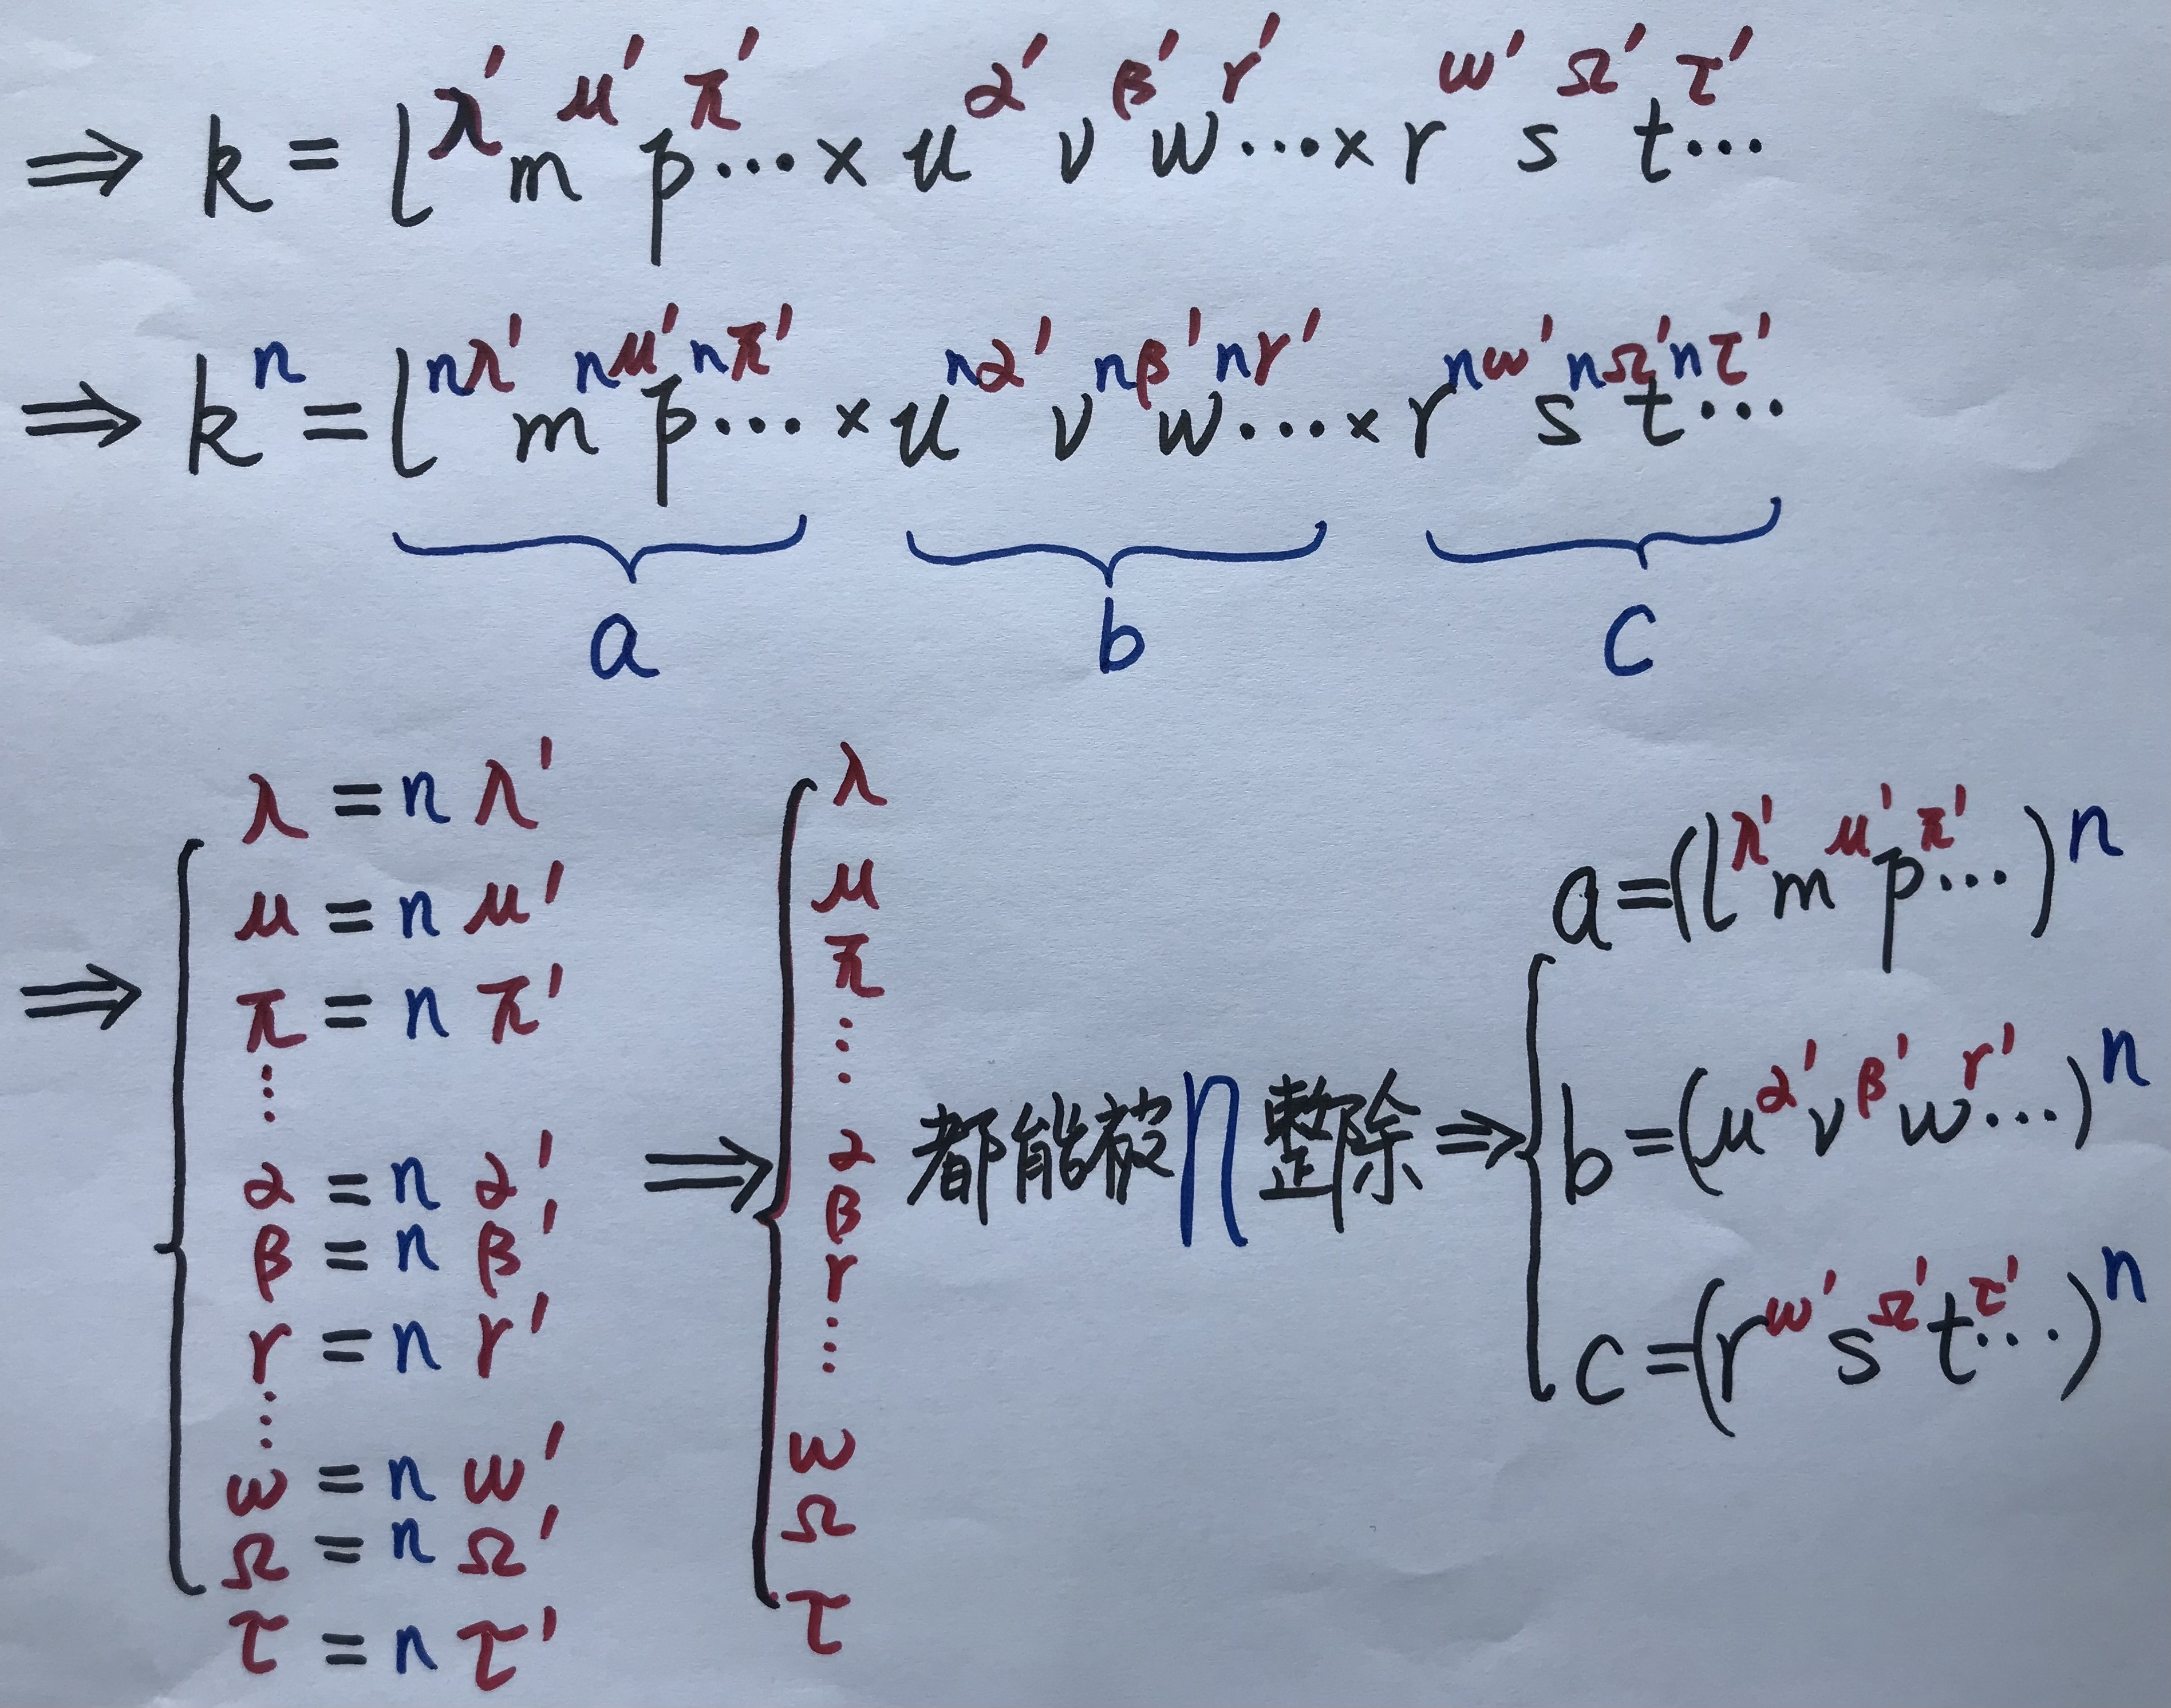 ⇒ k = l^λ' m^μ' p^π' ⋯ × u^α' v^β' w^γ' ⋯ × r^ω' s^Ω' t^τ' ⋯
⇒ k^n = l^nλ' m^nμ' p^nπ' ⋯ × u^nα' v^nβ' w^nγ' ⋯ × r^nω' s^nΩ' t^nτ' ⋯
a b c
⇒ {
λ = n λ'
μ = n μ'
π = n π'
⋮
α = n α'
β = n β'
γ = n γ'
⋮
ω = n ω'
Ω = n Ω'
τ = n τ'
⇒ {
λ
μ
π
⋮
α
β
γ
⋮
ω
Ω
τ
都能被n整除 ⇒ {
a = (l^λ' m^μ' p^π' ⋯)^n
b = (u^α' v^β' w^γ' ⋯)^n
c = (r^ω' s^Ω' t^τ' ⋯)^n